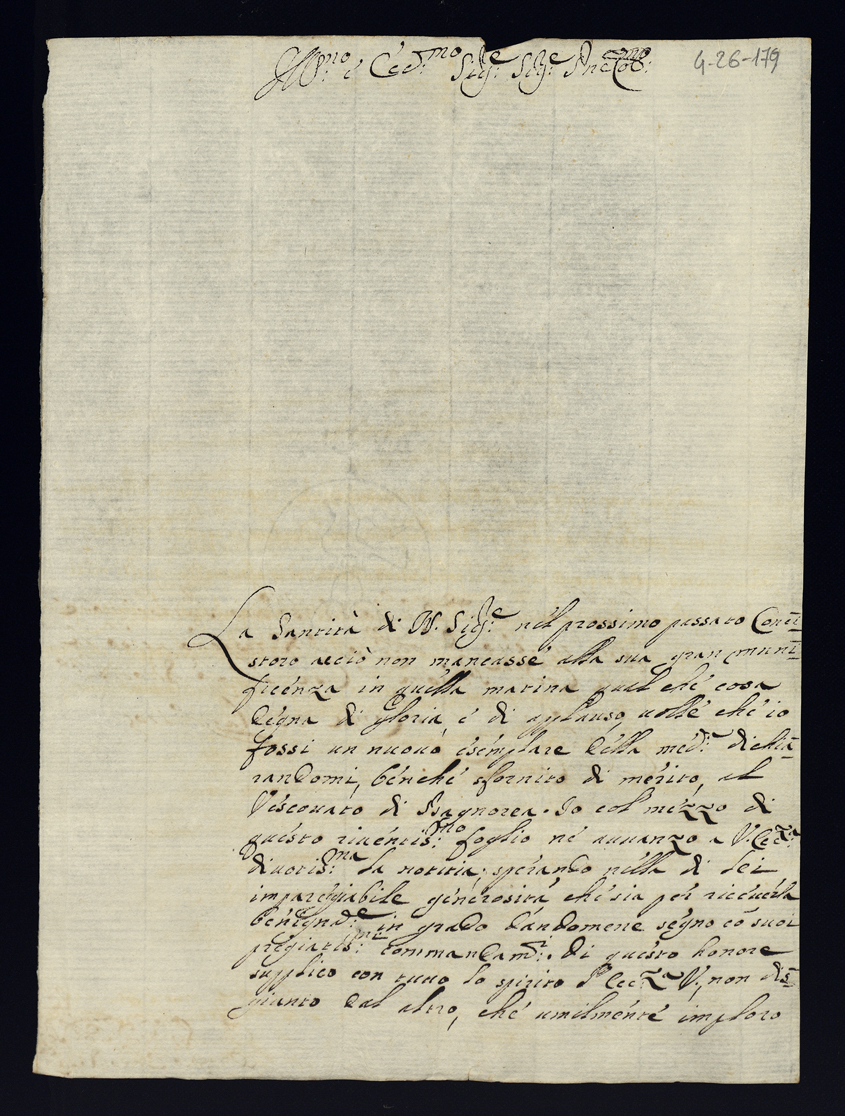 Ill.mo è Ecc.mo Sig.re Sig.re P.ne Col.mo
G-26-179
La Santità di N. Sig.re nel prossimo passato Conci-
storo acciò non mancasse alla sua gran muni-
ficenza in quella marina qual che cosa
degna di gloria, è di applauso, volle che io
fossi un nuovo esemplare della med.a dichia-
randomi, benche sfornito di merito, al
Vescovato di Bagnorea. Io col mezzo di
questo riverentis.mo foglio ne avvanzo a V. Ecc.za
divotis.ma la notitia, sperando nella di lei
impareggiabile generosità che sia per riceverla
benignam.te in grado dandomene segno co' suoi
pregiatis.mi commandam.ti. Di questo honore
supplico con tutto lo spirito l'Ecc.za V., non dis-
giunto dal altro, che umilmente imploro